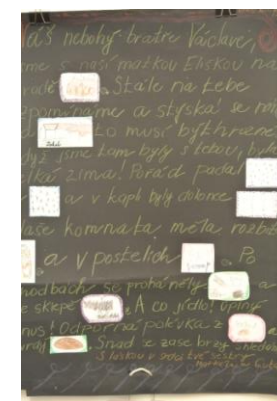 áš nebohý bratre Václave,
sme s naší matkou Eliškou na
radě Stále na tebe
zpomínáme a stýská se n
to musí být hrozné
dyž jsme tam byly s tebou, byla
zima! Pořád padal
a v kapli byly dokonce
aše komnata měla rozbi
a v postelích . Po
hodbách se proháněly a
e sklepě . A co jídlo! Úplný
nus! Odporná polévka z
Snad se zase brzy shledá
S láskou v srdci tvé sestry